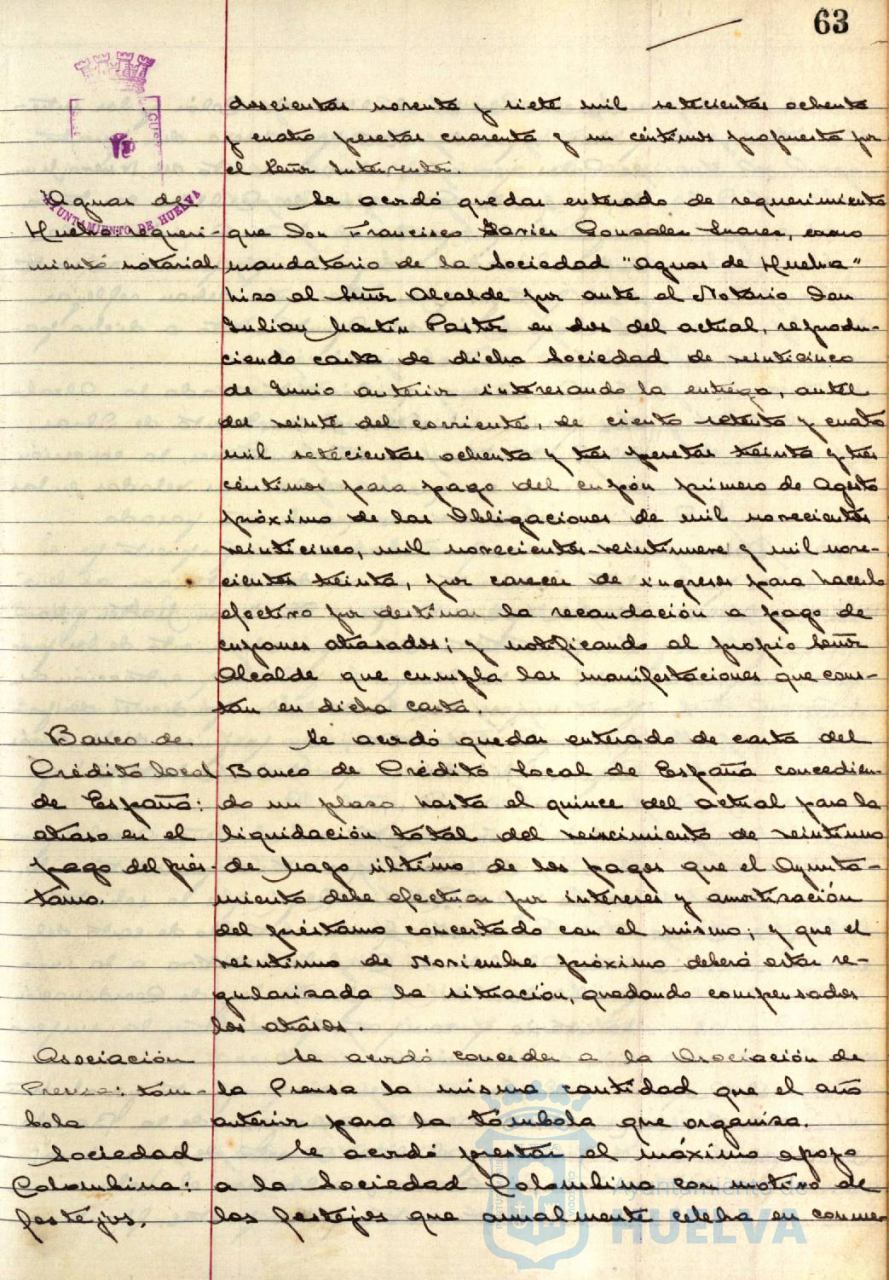 63
doscientas noventa y siete mil setecientas ochenta
y cuatro pesetas cuarenta y un céntimos propuesta por
el Señor Interventor.
AYUNTAMIENTO DE HUELVA
Aguas de
Huelva: requeri-
miento notarial
Se acordó quedar enterado de requerimiento
que Don Francisco Javier Gonzalez Suarez, como
mandatario de la Sociedad "Aguas de Huelva"
hizo al Señor Alcalde por ante el Notario Don
Julian Martin Pastor en dos del actual, reprodu-
ciendo carta de dicha Sociedad de veinticinco
de Junio anterior interesando la entrega, antes
del veinte del corriente, de ciento setenta y cuatro
mil setecientas ochenta y tres pesetas treinta y tres
céntimos para pago del cupón primero de Agosto
próximo de las Obligaciones de mil novecientos
veinticinco, mil novecientos veintinueve y mil nove-
cientos treinta, por carecer de ingresos para hacerlo
efectivo por destinar la recaudación a pago de
cupones atrasados; y notificando al propio Señor
Alcalde que cumpla las manifestaciones que cons-
tan en dicha carta.
Banco de
Crédito local
de España:
atraso en el
pago del prés-
tamo.
Se acordó quedar enterado de carta del
Banco de Crédito local de España concedien-
do un plazo hasta el quince del actual para la
liquidación total del vencimiento de veintiuno
de Mayo último de los pagos que el Ayunta-
miento debe efectuar por intereses y amortización
del préstamo concertado con el mismo; y que el
veintiuno de Noviembre próximo deberá estar re-
gularizada la situación, quedando compensados
los atrasos.
Asociación
Prensa: tóm-
bola
Se acordó conceder a la Asociación de
la Prensa la misma cantidad que el año
anterior para la tómbola que organiza.
Sociedad
Colombina:
festejos.
Se acordó prestar el máximo apoyo
a la Sociedad Colombina con motivo de
los festejos que anualmente celebra en conme-
Ayuntamiento de
HUELVA